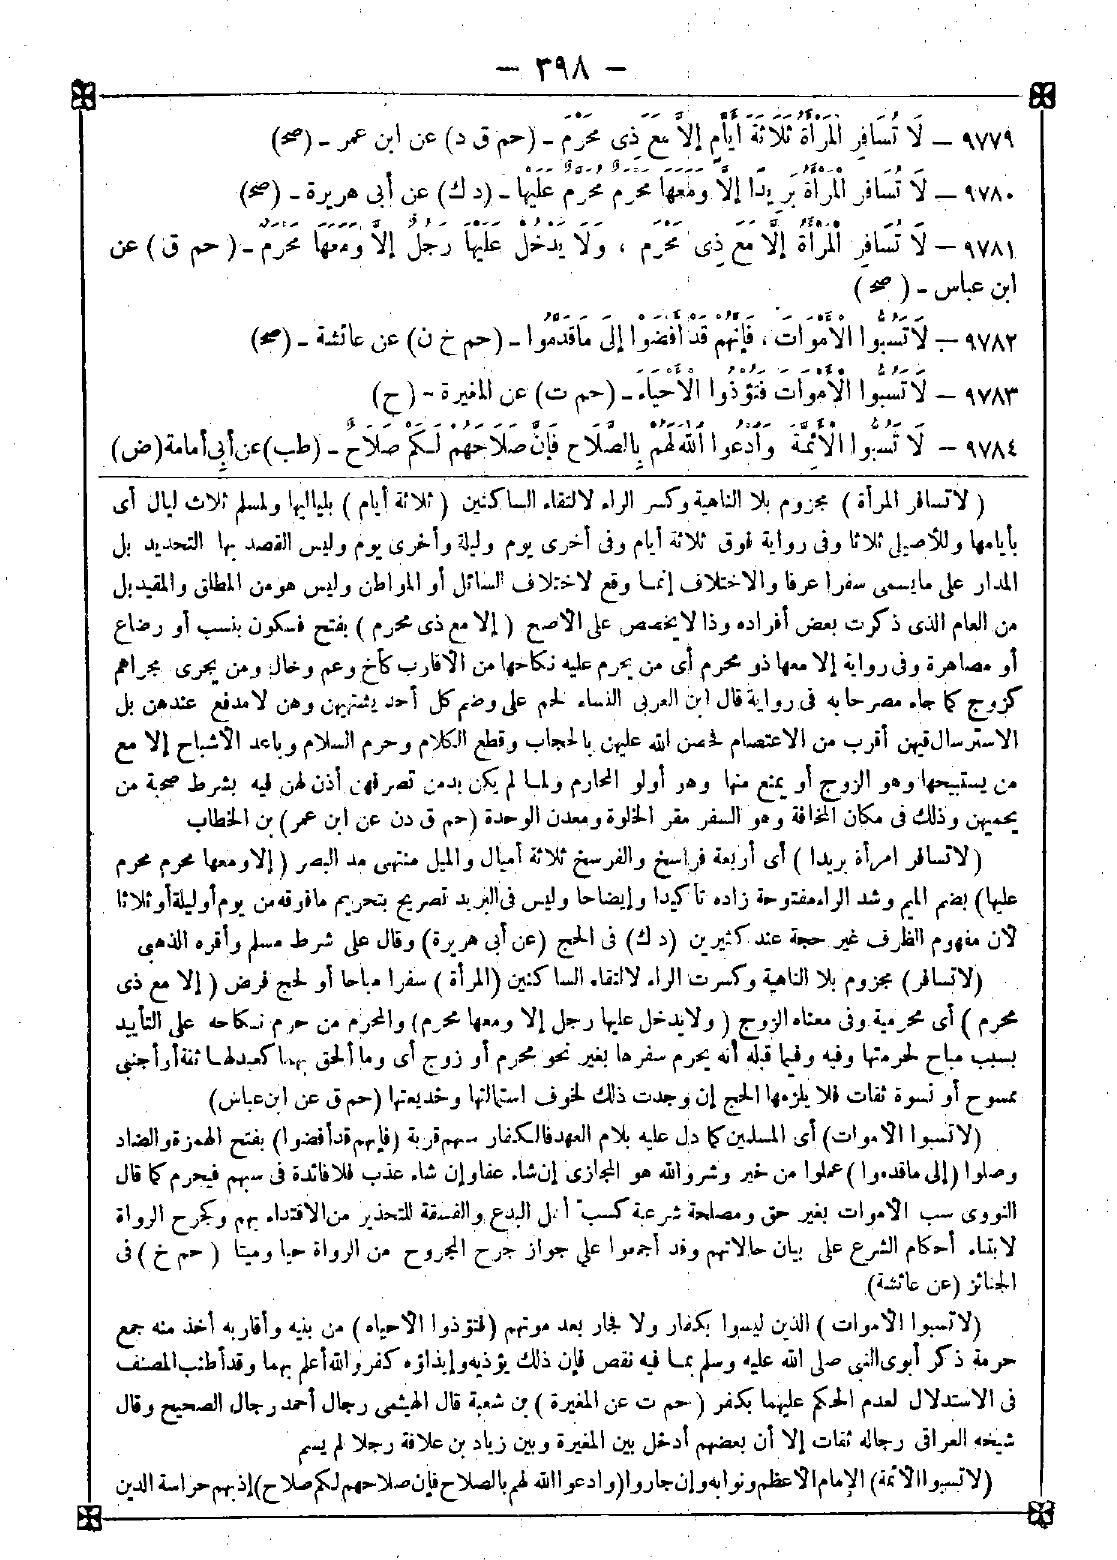 — ٣٩٨ —
٩٧٧٩ — لَا تُسَافِرِ الْمَرْأَةُ ثَلَاثَةَ أَيَّامٍ إِلَّا مَعَ ذِى مَحْرَمٍ ـ (حم ق د) عن ابن عمر ـ (صح)
٩٧٨٠ — لَا تُسَافِرِ الْمَرْأَةُ بَرِيدًا إِلَّا وَمَعَهَا مَحْرَمٌ مُحَرَّمٌ عَلَيْهَا ـ (د ك) عن أبى هريرة ـ (صح)
٩٧٨١ — لَا تُسَافِرِ الْمَرْأَةُ إِلَّا مَعَ ذِى مَحْرَمٍ ، وَلَا يَدْخُلُ عَلَيْهَا رَجُلٌ إِلَّا وَمَعَهَا مَحْرَمٌ ـ (حم ق) عن
ابن عباس ـ (صح)
٩٧٨٢ — لَا تَسُبُّوا الْأَمْوَاتَ ، فَإِنَّهُمْ قَدْ أَفْضَوْا إِلَى مَا قَدَّمُوا ـ (حم خ ن) عن عائشة ـ (صح)
٩٧٨٣ — لَا تَسُبُّوا الْأَمْوَاتَ فَتُؤْذُوا الْأَحْيَاءَ ـ (حم ت) عن المغيرة ـ (ح)
٩٧٨٤ — لَا تَسُبُّوا الْأَئِمَّةَ وَادْعُوا اللهَ لَهُمْ بِالصَّلَاحِ فَإِنَّ صَلَاحَهُمْ لَكُمْ صَلَاحٌ ـ (طب) عن أبى أمامة (ض)
( لا تسافر المرأة ) مجزوم بلا الناهية وكسر الراء لالتقاء الساكنين ( ثلاثة أيام ) بلياليها ولمسلم ثلاث ليال أى
بأيامها وللأصيلى ثلاثا وفى رواية فوق ثلاثة أيام وفى أخرى يوم وليلة وأخرى يوم وليس القصد بها التحديد بل
المدار على ما يسمى سفرا عرفا والاختلاف إنما وقع لاختلاف السائل أو المواطن وليس هو من المطلق والمقيد بل
من العام الذى ذكرت بعض أفراده وذا لا يخصص على الأصح ( إلا مع ذى محرم ) بفتح فسكون بنسب أو رضاع
أو مصاهرة وفى رواية إلا معها ذو محرم أى من يحرم عليه نكاحها من الأقارب كأخ وعم وخال ومن يجرى مجراهم
كزوج كما جاء مصرحا به فى رواية قال ابن العربى النساء لحم على وضم كل أحد يشتهيهن وهن لا مدفع عندهن بل
الاسترسال فيهن أقرب من الاعتصام فحصن الله عليهن بالحجاب وقطع الكلام وحرم السلام وباعد الأشباح إلا مع
من يستبيحها وهو الزوج أو يمنع منها وهو أولو المحارم ولما لم يكن بد من تصرفهن أذن لهن فيه بشرط صحبة من
يحميهن وذلك فى مكان المخافة وهو السفر مقر الخلوة ومعدن الوحدة (حم ق دن عن ابن عمر) بن الخطاب
( لا تسافر امرأة بريدا ) أى أربعة فراسخ والفرسخ ثلاثة أميال والميل منتهى مد البصر ( إلا ومعها محرم محرم
عليها) بضم الميم وشد الراء مفتوحة زاده تأكيدا وإيضاحا وليس فى البريد تصريح بتحريم ما فوقه من يوم أو ليلة أو ثلاثا
لأن مفهوم الظرف غير حجة عند كثيرين (د ك) فى الحج (عن أبى هريرة) وقال على شرط مسلم وأقره الذهبى
(لا تسافر) مجزوم بلا الناهية وكسرت الراء لالتقاء الساكنين (المرأة ) سفرا مباحا أو لحج فرض ( إلا مع ذى
محرم ) أى محرمية وفى معناه الزوج ( ولا يدخل عليها رجل إلا ومعها محرم) والمحرم من حرم نكاحه على التأبيد
بسبب مباح لحرمتها وفيه وفيما قبله أنه يحرم سفرها بغير نحو محرم أو زوج أى وما ألحق بهما كعبد لها ثقة أو أجنبى
ممسوح أو نسوة ثقات فلا يلزمها الحج إن وجدت ذلك لخوف استمالتها وخديعتها (حم ق عن ابن عباس)
(لا تسبوا الأموات) أى المسلمين كما دل عليه بلام العهد فالكفار سبهم قربة (فإنهم قد أفضوا) بفتح الهمزة والضاد
وصلوا (إلى ما قدموا ) عملوا من خير وشر والله هو المجازى إن شاء عفا وإن شاء عذب فلا فائدة فى سبهم فيحرم كما قال
النووى سب الأموات بغير حق ومصلحة شرعية كسب أهل البدع والفسقة للتحذير من الاقتداء بهم وكجرح الرواة
لابتناء أحكام الشرع على بيان حالاتهم وقد أجمعوا على جواز جرح المجروح من الرواة حيا وميتا ( حم خ ) فى
الجنائز (عن عائشة)
(لا تسبوا الأموات ) الذين ليسوا بكفار ولا فجار بعد موتهم (فتؤذوا الأحياء ) من بنيه وأقاربه أخذ منه جمع
حرمة ذكر أبوى النبى صلى الله عليه وسلم بما فيه نقص فإن ذلك يؤذيه وإيذاؤه كفر والله أعلم بهما وقد أطنب المصنف
فى الاستدلال لعدم الحكم عليهما بكفر ( حم ت عن المغيرة ) بن شعبة قال الهيثمى رجال أحمد رجال الصحيح وقال
شيخه العراقى رجاله ثقات إلا أن بعضهم أدخل بين المغيرة وبين زياد بن علاقة رجلا لم يسم
(لا تسبوا الأئمة) الإمام الأعظم ونوابه وإن جاروا (وادعوا الله لهم بالصلاح فإن صلاحهم لكم صلاح) إذ بهم حراسة الدين